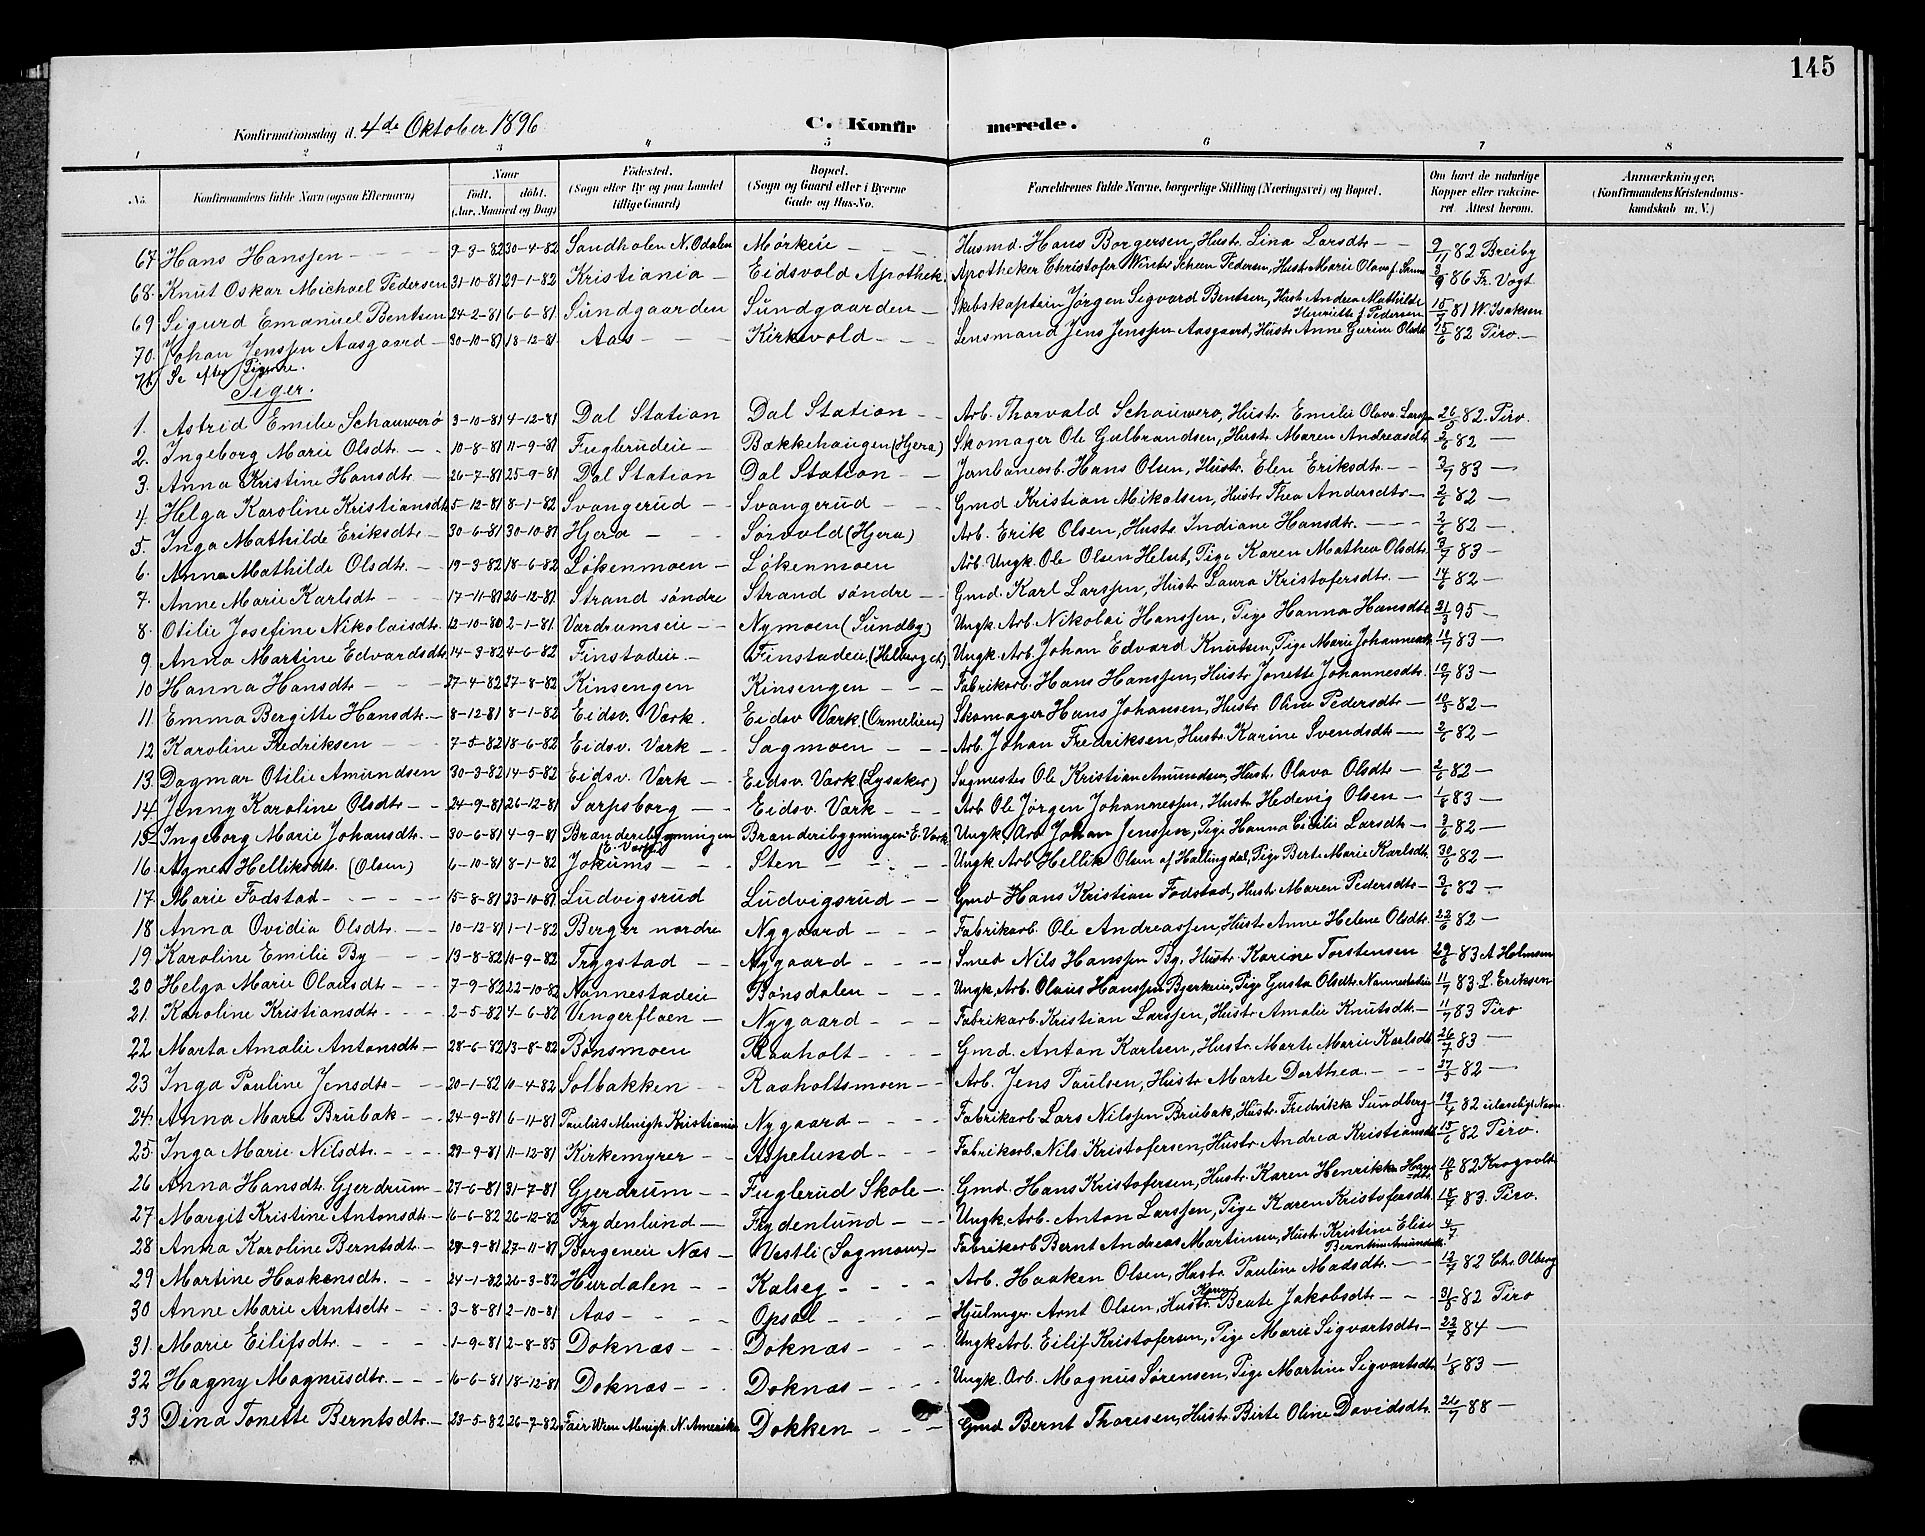 145
Konfirmationsdag d. 4de Oktober 1896 C. Konfirmerede.
1 2 3 4 5 6 7 8
No. Konfirmandens fulde Navn (ogsaa Efternavn) Naar Født. døbt. (Aar, Maaned og Dag) Fødested. (Sogn eller By og paa Landet tillige Gaard) Bopæl. (Sogn og Gaard eller i Byerne Gade og Hus-No. Forældrenes fulde Navne, borgerlige Stilling (Næringsvei) og Bopæl. Om havt de naturlige Kopper eller vaccineret. Attest herom. Anmerkninger, (Konfirmandens Kristendomskundskab m. V.)
67 Hans Hanssen 9-3-82 30-4-82 Sandholen N. Odalen Mørkeie Husmd. Hans Borgersen, Hustr. Lina Larsdtr 9/11 82 Breiby
68. Knut Oskar Michael Pedersen 31-10-81 29-1-82 Kristiania Eidsvold Apothek. Apotheker Christofer Winter Scheen Pedersen, Hustr. Marie Olava f. 3/9 86 Fr. Vogt
69 Sigurd Emanuel Bentsen 24-2-81 6-6-81 Sundgaarden Sundgaarden Skibskaptein Jørgen Sigvard Bentsen, Hustr Andrea Mathilde Henriette f. Pedersen 15/7 81 W. Isaksen
70. Johan Jenssen Aasgaard 30-10-81 18-12-81 Aas Kirkevold Lensmand Jens Jenssen Aasgaard, Hustr. Anne Gurine Olsdt 15/6 82 Piro
71) Se efter Pigerne.
Piger.
1. Astrid Emilie Schauwerø 3-10-81 4-12-81 Dal Station Dal Station Arb. Thorvald Schauwero, Hustr. Emilie Olava Larssen 26/5 82 Piro.
2. Ingeborg Marie Olsdtr. 10-8-81 11-9-81 Fuglerudeie Bækkehaugen (Hjera) Skomager Ole Gulbrandsen, Hustr. Maren Andreasdt 2/6 82 —
3. Anna Kristine Hansdtr. 26-7-81 25-9-81 Dal Station Dal Station Jernbanearb. Hans Olsen, Hustr. Elen Eriksdtr. 3/7 83 —
4. Helga Karoline Kristiansdtr 5-12-81 8-1-82 Svangerud Svangerud Gmd Kristian Mikalsen, Hustr. Thea Andersdtr 2/6 82 —
5. Inga Mathilde Eriksdtr. 30-6-81 30-10-81 Hjera Sørvold (Hjera) Arb. Erik Olsen, Hustr. Indiane Hansdt. 2/6 82 —
6. Anna Mathilde Olsdtr. 19-3-82 18-6-82 Løkenmoen Løkenmoen Arb. Ungk. Ole Olsen Helset, Pige Karen Mathea Olsdtr. 3/7 83 —
7. Anne Marie Karlsdt 17-11-81 26-12-81 Strand søndre Strand søndre Gmd. Karl Larssen, Hustr. Laura Kristofersdtr. 14/6 82 —
8. Otilie Josefine Nikolaisdtr. 12-10-80 2-1-81 Vardrumseie Nymoen (Sundby) Ungk. Arb. Nikolai Hanssen, Pige Hanna Hansdtr 21/3 95 —
9. Anna Martine Edvardsdtr 14-3-82 4-6-82 Finstadeie Finstadeie (Helberget) Ungk. Arb. Johan Edvard Knutsen, Pige Marie Johannesdtr 18/7 83 —
10 Hanna Hansdtr 27-4-82 27-8-82 Kinsengen Kinsengen Fabrikarb. Hans Hanssen, Hustr. Jonette Johannesdtr. 19/7 83 —
11. Emma Bergitte Hansdtr. 8-12-81 8-1-82 Eidsv. Værk. Eidsv Værk (Ormelien) Skomager Hans Johansen, Hustr. Oline Pedersdtr 10/3 82 —
12 Karoline Fredriksen 7-5-82 18-6-82 Eidsv. Værk Sagmoen Arb. Johan Fredriksen, Hustr. Karine Svendsdtr 2/6 82 —
13. Dagmar Otilie Amundsen 30-3-82 14-5-82 Eidsv. Værk Eidsv. Værk (Lysaker) Sagmester Ole Kristian Amundsen, Hustr. Olava Olsdtr. 2/6 82 —
14. Jenny Karoline Olsdtr. 24-9-81 26-12-81 Sarpsborg Eidsv. Værk Arb. Ole Jørgen Johannessen, Hustr. Hedevig Olsen 1/8 83 —
15. Ingeborg Marie Johansdtr. 30-6-81 4-9-81 Branderibygningen (E. Værk) Branderibygningen E. Værk Ungk. Arb Johan Jenssen, Pige Hanna Cecilie Larsdtr 3/6 82 —
16. Agnes Helliksdtr. (Olsen) 6-10-81 8-1-82 Jokums Sten Ungk Arb Hellik Olsen af Hallingdal, Pige Berte Marie Karlsdtr. 30/6 82 —
17. Marie Fodstad 15-8-81 23-10-81 Ludvigsrud Ludvigsrud Gmd Hans Kristian Fodstad, Hustr. Maren Pedersdtr 3/6 82 —
18 Anna Ovidia Olsdtr. 10-12-81 1-1-82 Berger nordre Nygaard Fabrikarb. Ole Andreassen, Hustr. Anne Helene Olsdtr. 22/6 82 —
19 Karoline Emilie By 13-8-82 10-9-82 Trygstad Nygaard Smed Nils Hanssen By, Hustr. Karine Torstensen 29/6 83 A Holmsen
20 Helga Marie Olausdtr 7-9-82 22-10-82 Nannestadeie Bønsdalen Ungk. Arb. Olaus Hanssen Bjerkeeie, Pige Gusta Olsdtr. Nannestadeie 11/7 83 L. Eriksen
21. Karoline Kristiansdtr. 2-5-82 4-6-82 Vengerflaen Nygaard Fabrikarb. Kristian Larssen, Hustr Amalie Knutsdtr. 11/7 83 Piro
22 Marta Amalie Antonsdt 28-6-82 13-8-82 Bønsmoen Raaholt Gmd. Anton Karlsen, Hustr. Marte Marie Karlsdt 26/7 83 —
23 Inga Pauline Jensdtr. 20-1-82 10-4-82 Solbakken Raaholtsmoen Arb. Jens Paulsen, Hustr Marte Dorthea. 27/5 82 —
24. Anna Marie Brubak 24-9-81 6-11-81 Paulus Menigh. Kristiania Nygaard Fabrikarb Lars Nilssen Brubak, Hustr. Fredrikke Sundberg 19/4 82 ulæseligt Navn
25. Inga Marie Nilsdtr. 29-9-81 11-12-81 Kirkemyrer Aspelund Fabrikarb. Nils Kristofersen, Hustr. Andrea Kristiansdt 15/6 82 Piro.
26 Anna Hansdtr. Gjerdrum 27-6-81 31-7-81 Gjerdrum Fuglerud Skole Gmd. Hans Kristofersen, Hustr. Karen Henrikke 10/8 82 Krogvold
27 Margit Kristine Antonsdtr. 6-6-82 26-12-82 Frydenlund Frydenlund Ungk. Arb. Anton Larssen, Pige Karen Kristofersdt. 18/7 83. Piro.
28 Anna Karoline Berntsdt. 29-9-81 27-11-81 Borgeneie Næs Vestli (Sagmoen) Fabrikarb Bernt Andreas Martinsen, Hustr Kristine Elise Berntine Amundsdtr. 4/7
29 Martine Haakensdt. 24-1-82 26-3-82 Hurdalen Kalseg Arb. Haaken Olsen, Hustr. Pauline Madsdtr. 12/7 82 Chr. Olberg
30 Anne Marie Arntsdtr. 3-8-81 2-10-81 Aas Opsal Hjulmgr. Arnt Olsen, Hustr. Karen Beate Jakobsdtr 31/5 82 Piro
31. Marie Eilifsdtr. 1-9-81 2-8-85 Doknæs Doknæs Ungk Arb. Eilif Kristofersen, Pige Marie Sigvartsdtr 22/7 84 —
32 Hagny Magnusdtr. 16-6-81 18-12-81 Doknæs Doknæs Ungk. Arb. Magnus Sørensen, Pige Martine Sigvartsdtr. 1/8 83 —
33 Dina Tonette Berntsdtr. 23-5-82 26-7-82 Menigh. N. Amerika Dokken Gmd Bernt Thoresen, Hustr. Birte Oline Davidsdtr. 26/7 88 —